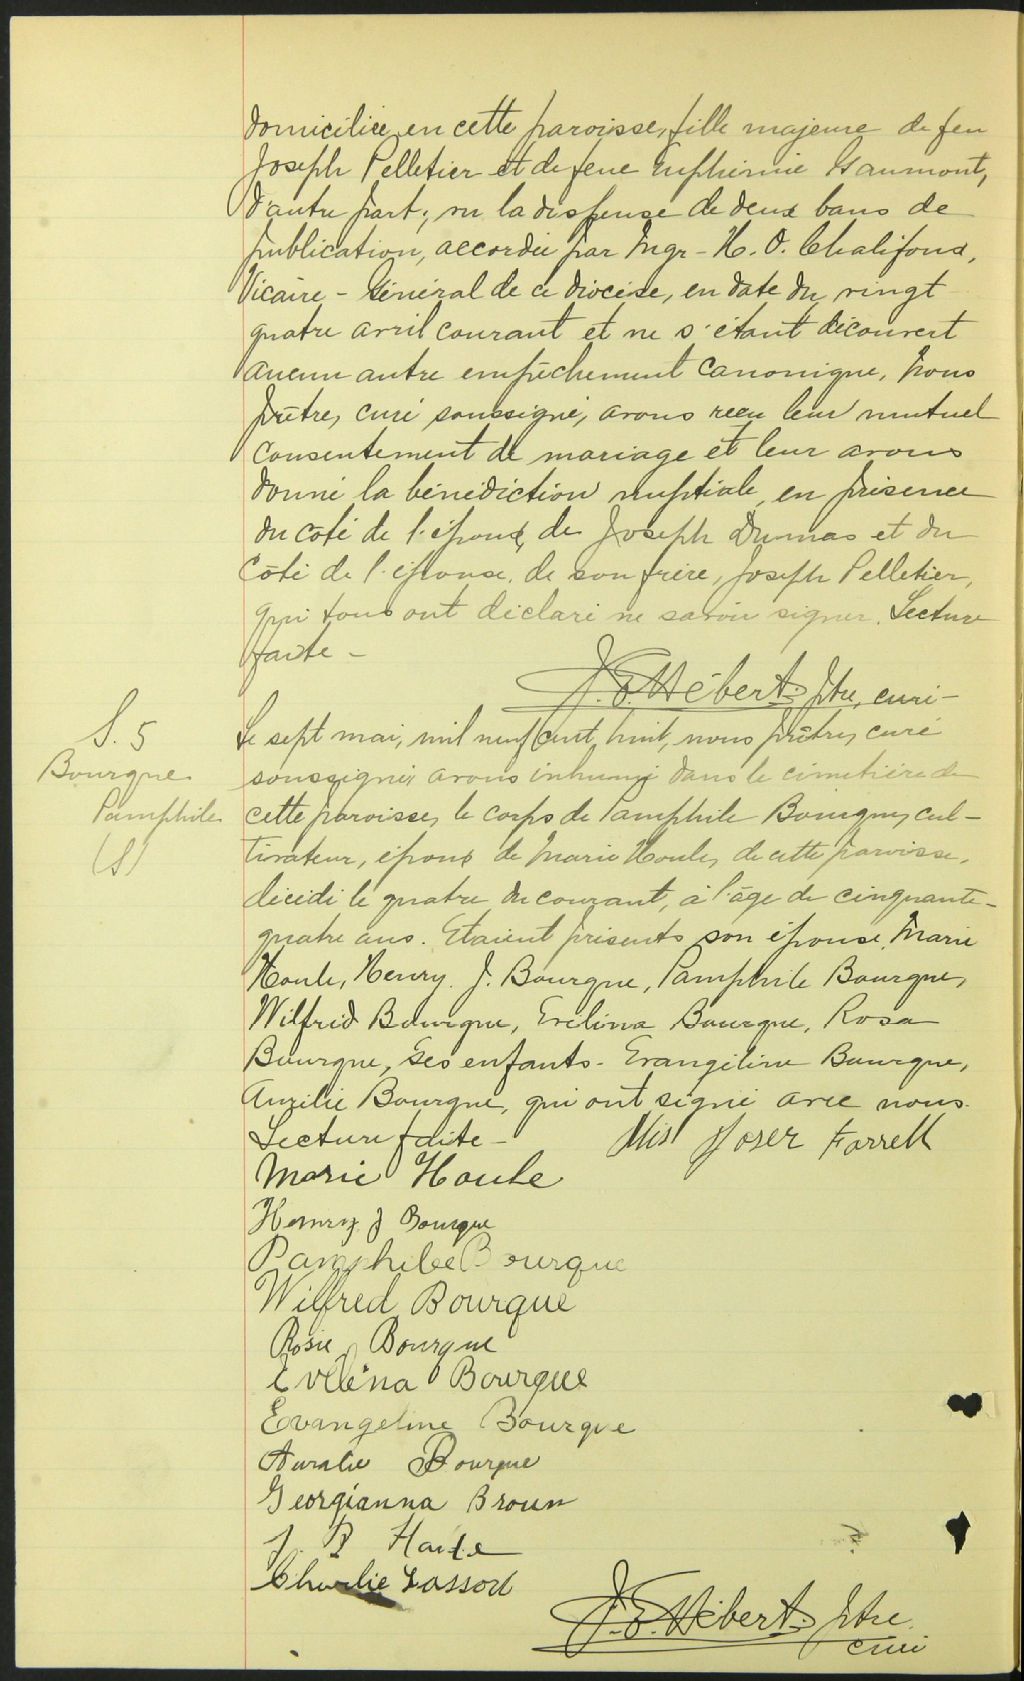 domiciliée en cette paroisse, fille majeure de feu
Joseph Pelletier et de feue Euphémie Gaumont,
d'autre part; vu la dispense de deux bans de
publication, accordée par Mgr - H. O. Chalifoux,
Vicaire - Général de ce diocèse, en date du vingt
quatre avril courant et ne s'étant découvert
aucun autre empêchement canonique, Nous
prêtre, curé soussigné, avons reçu leur mutuel
consentement de mariage et leur avons
donné la bénédiction nuptiale, en présence
du côté de l'époux, de Joseph Dumas et du
côté de l'épouse, de son frère, Joseph Pelletier,
qui tous ont déclaré ne savoir signer. Lecture
faite -
J. E. Hébert Ptre, curé -
S. 5
Bourque
Pamphile
(S)
Le sept mai, mil neuf cent huit, nous prêtre, curé
soussigné, avons inhumé dans le cimetière de
cette paroisse, le corps de Pamphile Bourque, cul-
tivateur, époux de Marie Houle, de cette paroisse,
décédé le quatre du courant, à l'âge de cinquante-
quatre ans. Etaient présents son épouse, Marie
Houle, Henry. J. Bourque, Pamphile Bourque,
Wilfrid Bourque, Evélina Bourque, Rosa
Bourque, ses enfants - Evangéline Bourque,
Aurélie Bourque, qui ont signé avec nous.
Lecture faite - Mis Joser Farrell
Marie Houle
Henry J Bourque
Pamphile Bourque
Wilfred Bourque
Rosie Bourque
Evléna Bourque
Evangeline Bourque
Auralie Bourque
Georgianna Broun
J. B
Charlie
J. E. Hébert Ptre
curé